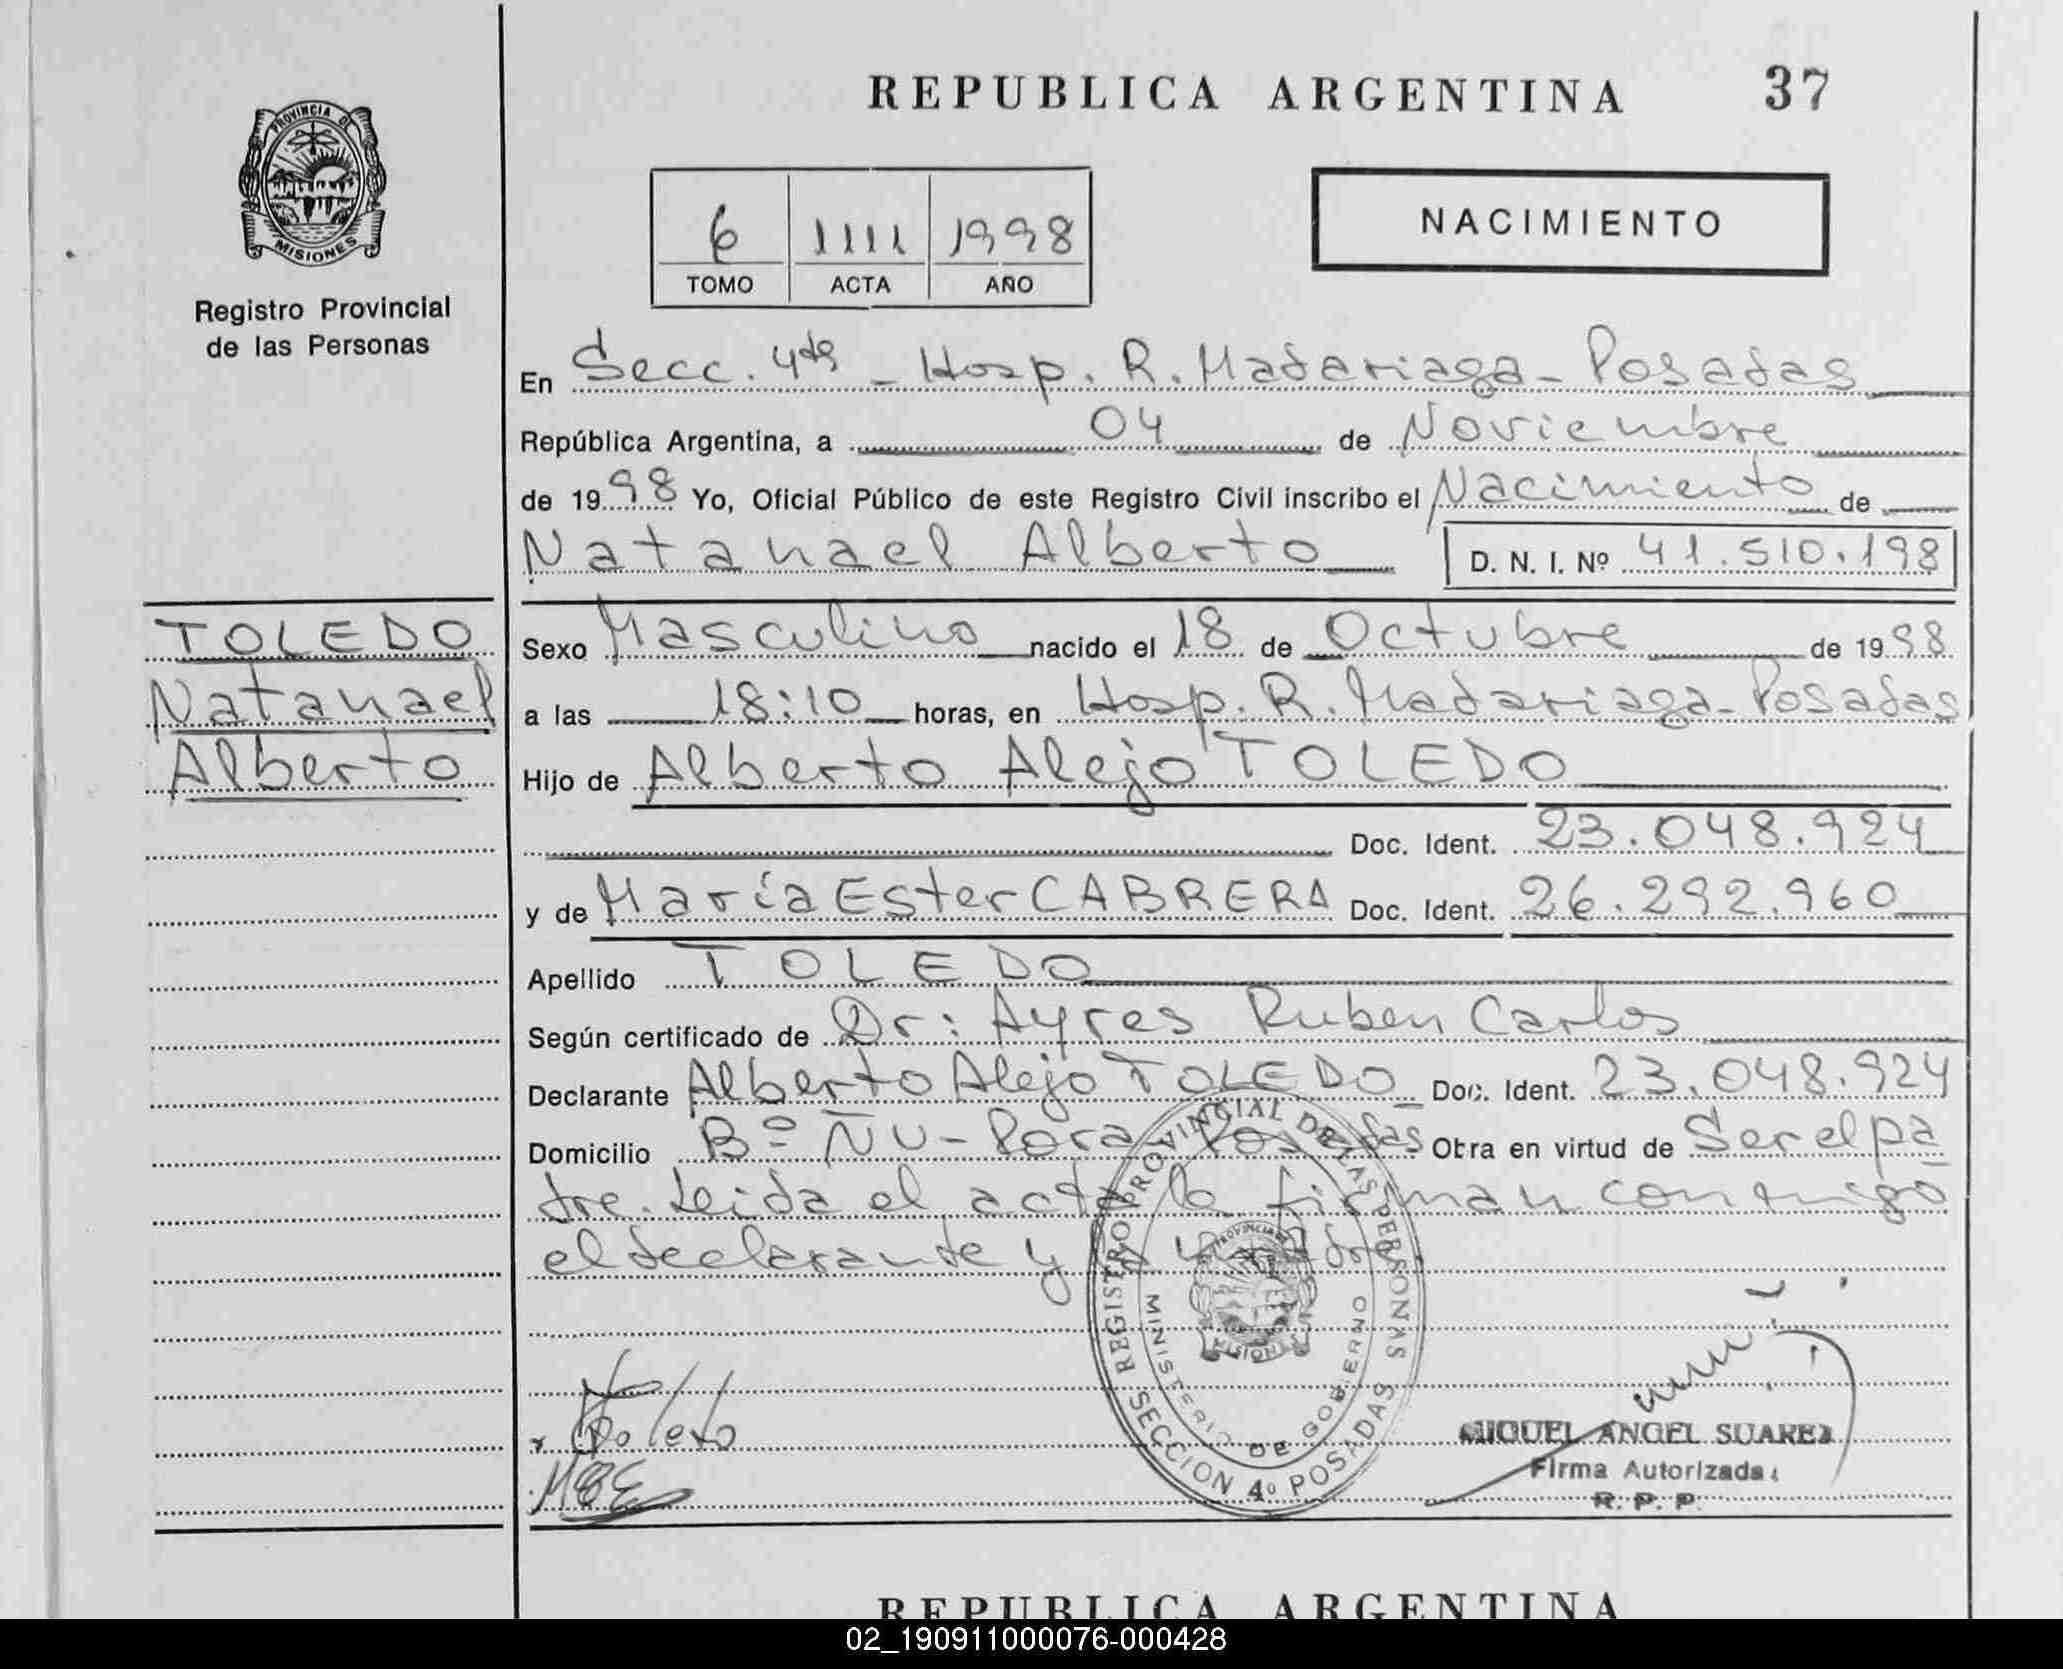 REPUBLICA ARGENTINA 37
PROVINCIA DE
MISIONES
Registro Provincial
de las Personas
6 1111 1998
TOMO ACTA AÑO
NACIMIENTO
En Secc. 4ta - Hosp. R. Madariaga - Posadas
República Argentina, a 04 de Noviembre
de 1998 Yo, Oficial Público de este Registro Civil inscribo el Nacimiento de
Natanael Alberto D. N. I. Nº 41.510.198
TOLEDO
Natanael
Alberto
Sexo Masculino nacido el 18 de Octubre de 1998
a las 18:10 horas, en Hosp. R. Madariaga - Posadas
Hijo de Alberto Alejo TOLEDO
Doc. Ident. 23.048.924
y de María Ester CABRERA Doc. Ident. 26.292.960
Apellido TOLEDO
Según certificado de Dr: Ayres Ruben Carlos
Declarante Alberto Alejo TOLEDO Doc. Ident. 23.048.924
Domicilio Bº ÑU - Pora - Posadas Obra en virtud de Ser el pa
dre. Leida el acta la firman conmigo
el declarante y la madre.
REGISTRO PROVINCIAL DE LAS PERSONAS
MINISTERIO DE GOBIERNO
SECCION 4º POSADAS
PROVINCIA DE
MISIONES
Toledo
MIGUEL ANGEL SUAREZ
Firma Autorizada
R. P. P.
REPUBLICA ARGENTINA
02_190911000076-000428